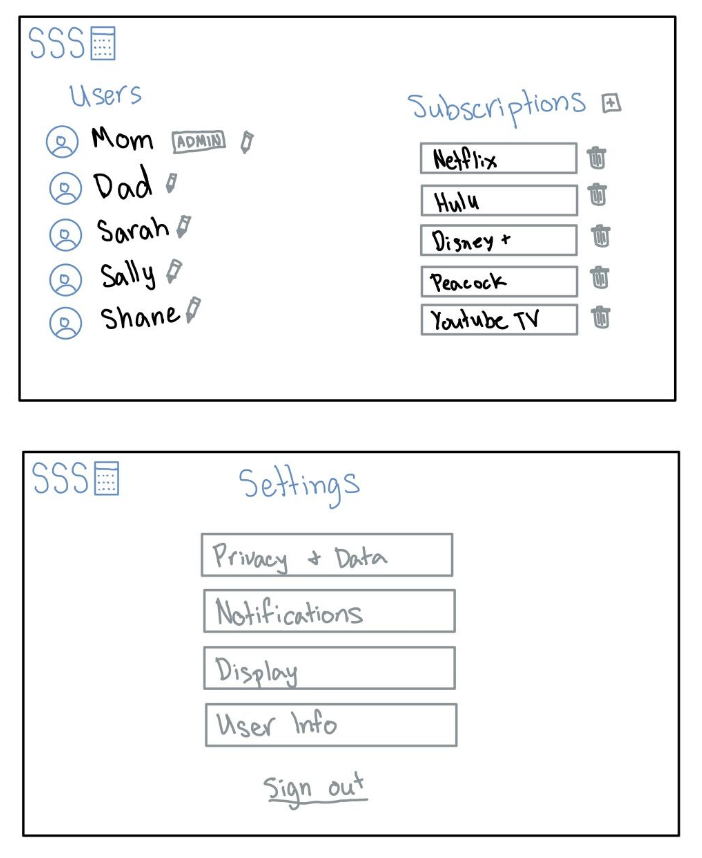 SSS
Users
Mom ADMIN
Dad
Sarah
Sally
Shane
Subscriptions
Netflix
Hulu
Disney +
Peacock
Youtube TV
SSS
Settings
Privacy + Data
Notifications
Display
User Info
Sign out